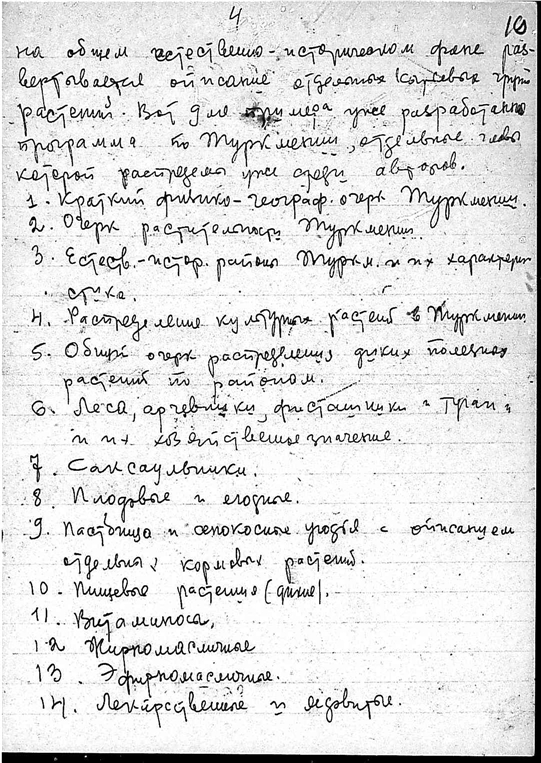 4
10
на общем естественно-историческом фоне раз-
вертывается описание отдельных сырьевых групп
растений. Вот для примера уже разработана
программа по Туркмении, отдельные главы
которой распределены уже среди авторов.
1. Краткий физико-географ. очерк Туркмении.
2. Очерк растительности Туркмении
3. Естеств.-истор. районы Туркм. и их характери
стика.
4. Распределение культурных растений в Туркмении
5. Общий очерк распределения диких полезных
растений по районам.
6. Леса, арчевники, фисташники и тугаи
и их хозяйственное значение.
7. Саксаульники.
8. Плодовые и ягодные.
9. Пастбища и сенокосные угодья с описанием
отдельных кормовых растений.
10. Пищевые растения (дикие).
11. Витаминосы.
12 Жирномасличные
13. Эфирномасличные.
14. Лекарственные и ядовитые.